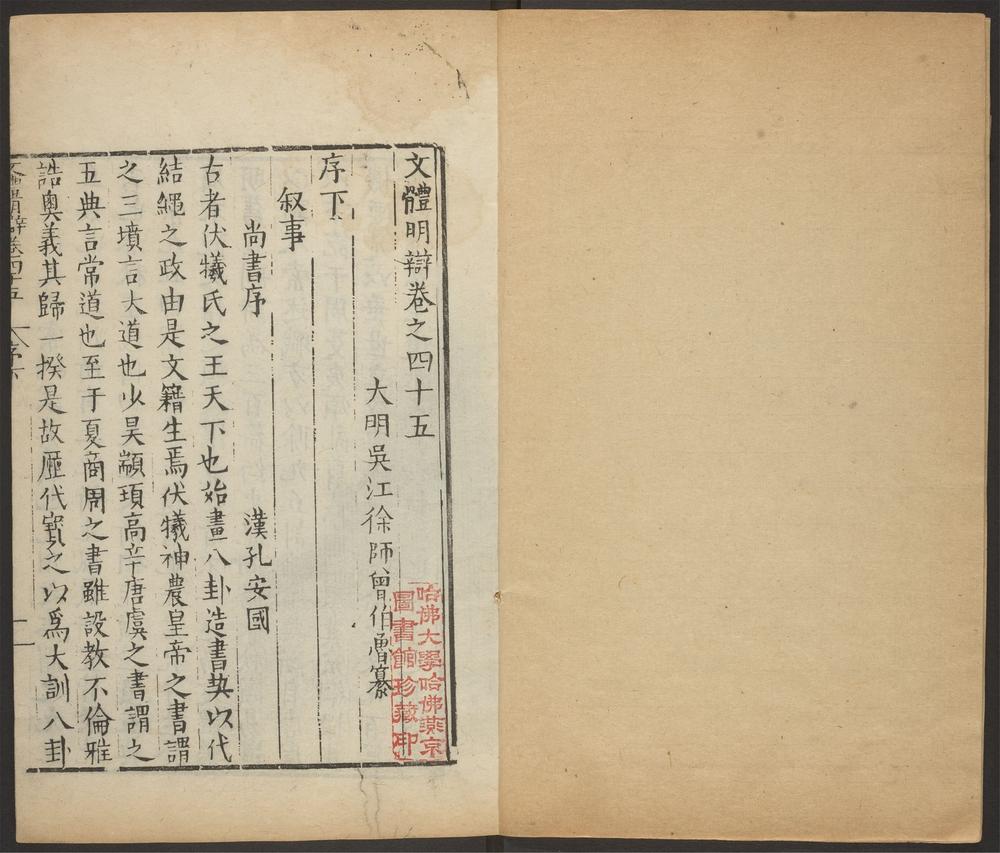 文體明辯卷之四十五
大明吳江徐師曾伯魯纂
序下
叙事
尚書序
漢孔安國
古者伏犧氏之王天下也始畫八卦造書契以代
結繩之政由是文籍生焉伏犧神農皇帝之書謂
之三墳言大道也少昊顓頊高辛唐虞之書謂之
五典言常道也至于夏商周之書雖設教不倫雅
誥奧義其歸一揆是故歷代寳之以爲大訓八卦
哈佛大學哈佛燕京
圖書館珍藏印